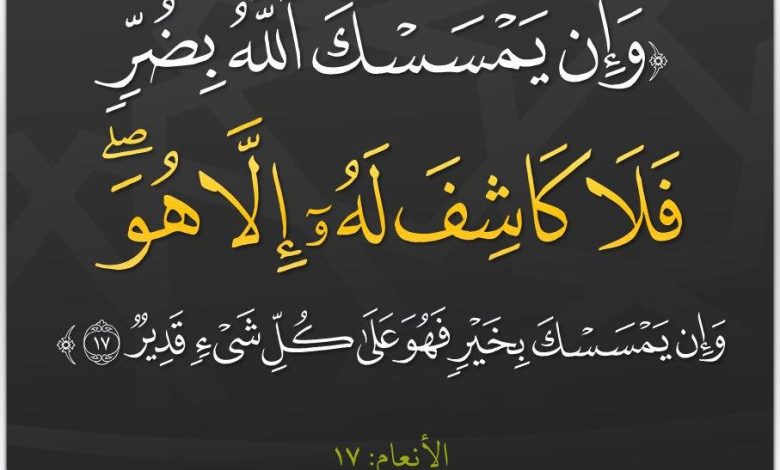 ﴿وَإِن يَمْسَسْكَ ٱللَّهُ بِضُرٍّ
فَلَا كَاشِفَ لَهُۥٓ إِلَّا هُوَۖ
وَإِن يَمْسَسْكَ بِخَيْرٍ فَهُوَ عَلَىٰ كُلِّ شَىْءٍ قَدِيرٌ ١٧﴾
الأنعام: ١٧